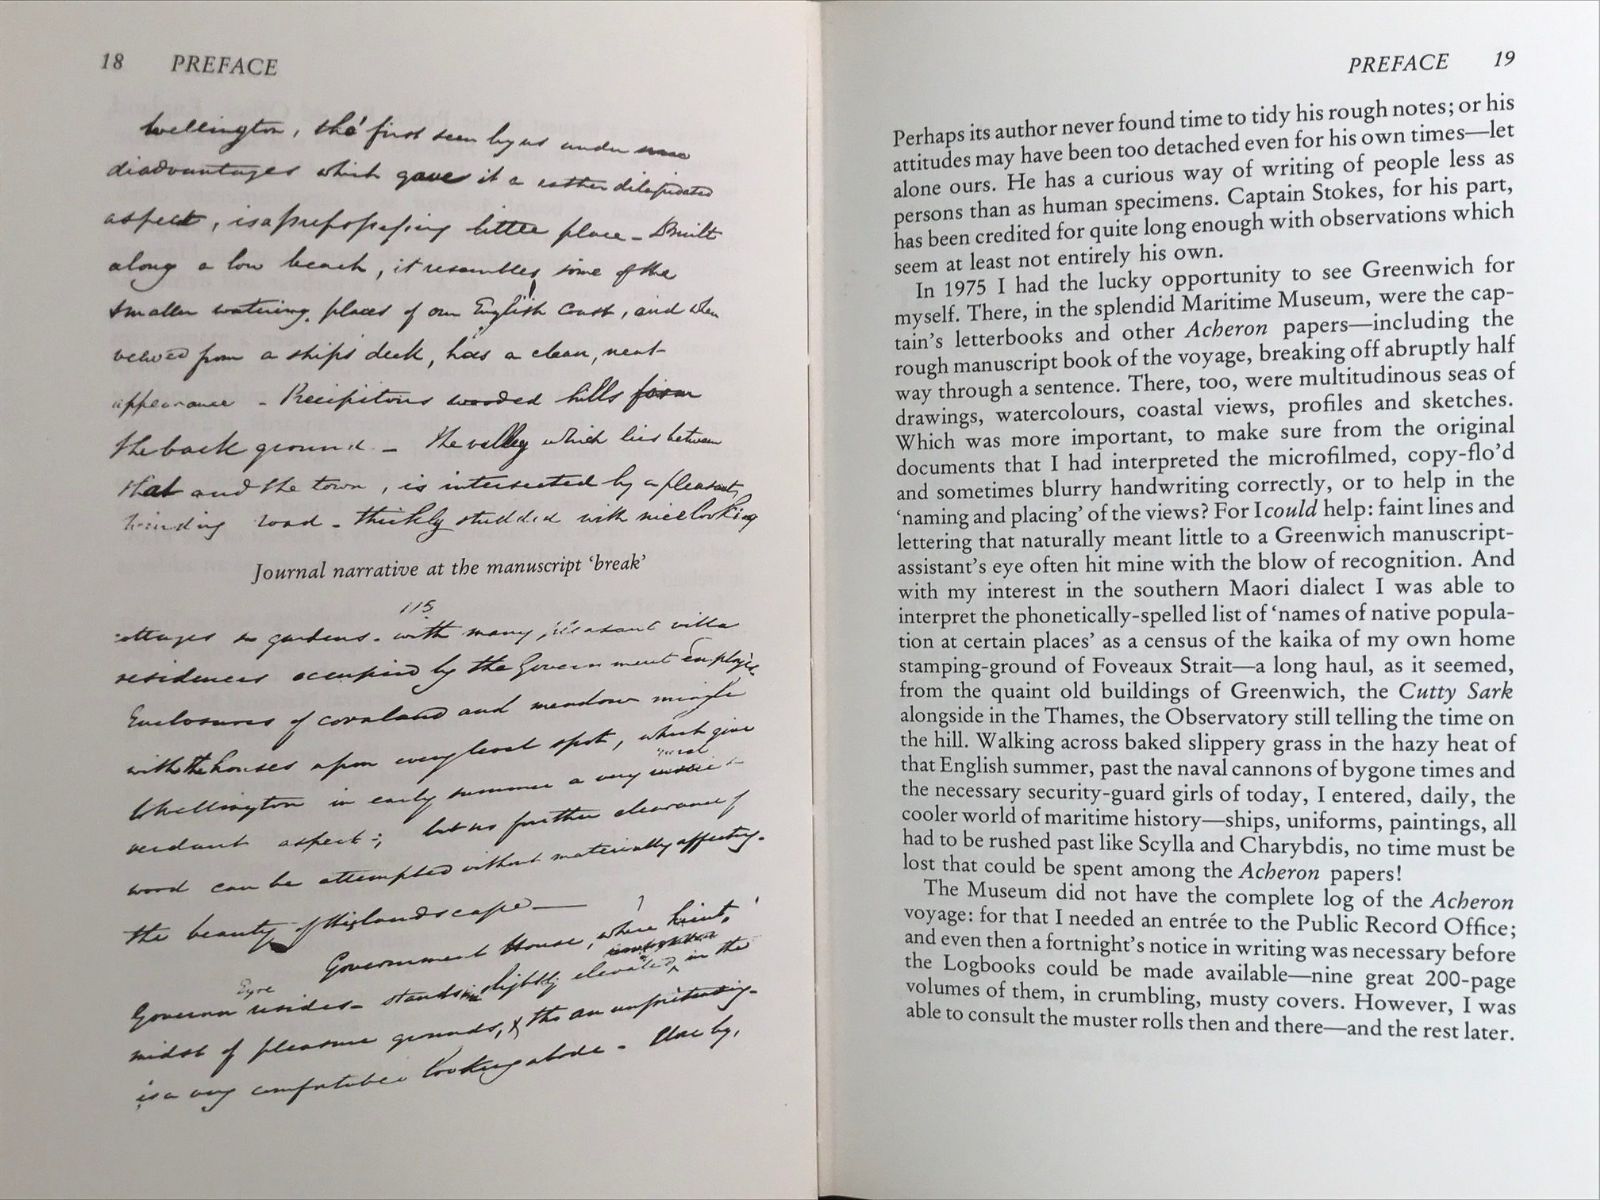 18 PREFACE
Wellington, tho' first seen by us under some
disadvantages which gave it a rather dilapidated
aspect, is a prepossessing little place – Built
along a low beach, it resembles some of the
smaller watering places of our English Coast, and when
veiwed from a ships deck, has a clean, neat
appearance – Precipitous wooded hills form
the back ground – The valley which lies between
that and the town, is intersected by a pleasant,
winding road – thickly studded with nice looking
Journal narrative at the manuscript ‘break’
115
cottages in gardens – with many, pleasant villa
residences occupied by the Government employés
Enclosures of cornland and meadow mingle
with the houses upon every level spot, which give
rural
Whellington in early summer a very
verdant aspect; but no further clearance of
wood can be attempted without materially affecting
the beauty of the landscape —
Government House, where Lieut.
Eyre
Governor resides – stands slightly elevated, in the
midst of pleasure grounds, & tho an unpretending
is a very comfortable looking abode –
PREFACE 19
Perhaps its author never found time to tidy his rough notes; or his
attitudes may have been too detached even for his own times—let
alone ours. He has a curious way of writing of people less as
persons than as human specimens. Captain Stokes, for his part,
has been credited for quite long enough with observations which
seem at least not entirely his own.
In 1975 I had the lucky opportunity to see Greenwich for
myself. There, in the splendid Maritime Museum, were the cap-
tain’s letterbooks and other Acheron papers—including the
rough manuscript book of the voyage, breaking off abruptly half
way through a sentence. There, too, were multitudinous seas of
drawings, watercolours, coastal views, profiles and sketches.
Which was more important, to make sure from the original
documents that I had interpreted the microfilmed, copy-flo’d
and sometimes blurry handwriting correctly, or to help in the
‘naming and placing’ of the views? For I could help: faint lines and
lettering that naturally meant little to a Greenwich manuscript-
assistant’s eye often hit mine with the blow of recognition. And
with my interest in the southern Maori dialect I was able to
interpret the phonetically-spelled list of ‘names of native popula-
tion at certain places’ as a census of the kaika of my own home
stamping-ground of Foveaux Strait—a long haul, as it seemed,
from the quaint old buildings of Greenwich, the Cutty Sark
alongside in the Thames, the Observatory still telling the time on
the hill. Walking across baked slippery grass in the hazy heat of
that English summer, past the naval cannons of bygone times and
the necessary security-guard girls of today, I entered, daily, the
cooler world of maritime history—ships, uniforms, paintings, all
had to be rushed past like Scylla and Charybdis, no time must be
lost that could be spent among the Acheron papers!
The Museum did not have the complete log of the Acheron
voyage: for that I needed an entrée to the Public Record Office;
and even then a fortnight’s notice in writing was necessary before
the Logbooks could be made available—nine great 200-page
volumes of them, in crumbling, musty covers. However, I was
able to consult the muster rolls then and there—and the rest later.